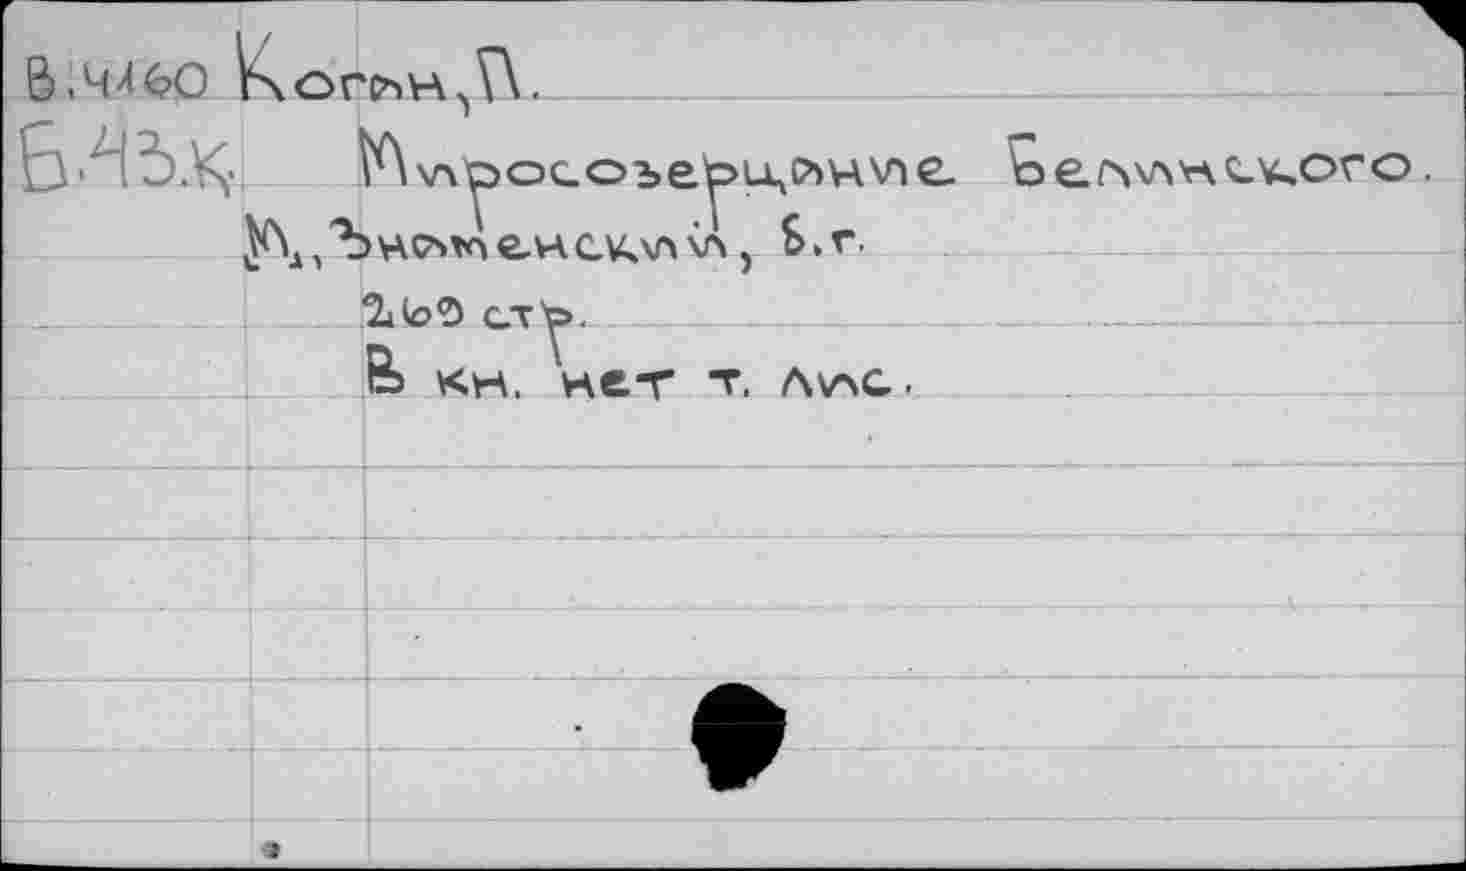 Коган, П.
Миросозерцание Белинского.
М., Знаменский, б.г.
стр.
В кн. нет т. лис.